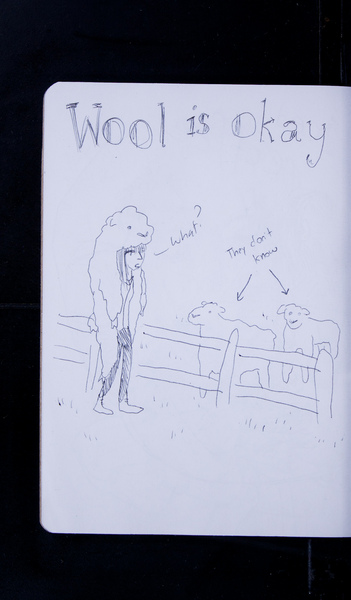 Wool is okay
What?
They don't
know